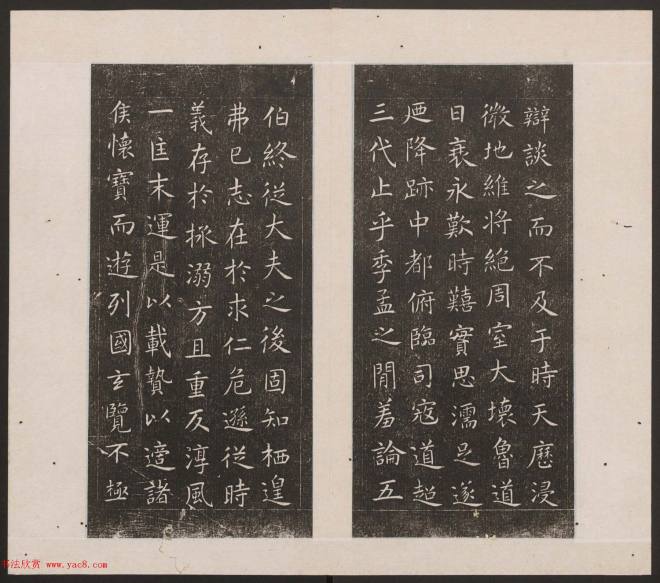 辯談之而不及于時天曆浸
微地維將絕周室大壞魯道
日衰永歎時囏實思濡足遂
迺降跡中都俯臨司寇道超
三代止乎季孟之閒羞論五
伯終從大夫之後固知栖遑
弗已志在於求仁危遜從時
義存於拯溺方且重反淳風
一匡末運是以載贄以適諸
侯懷寶而遊列國玄覽不極
书法欣赏 www.yac8.com